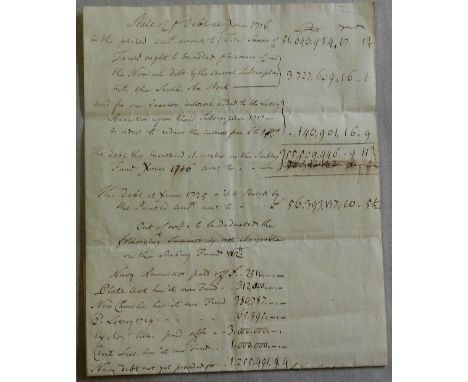 State of ye Debt at Xmas 1716
in the printed acct. amounts to ye Total Summ of 51,640,934,17 1¾
To wch ought to be added ye Increase of
the Nominal debt by the Several Subscriptions
into the South Sea Stock 3,727,609,16
and for one Quarters interest added to the Lottery
Annuitys upon their Subscription 1717
in order to reduce the interest from 6 to 140,901,16,9
The debt thus increased
Fund Xmas 1716 amt. to 55,509,446.9
The Debt at Xmas 1725 as Stated by
the Printed acct. amt. to 56,393,137.10.5¼
Out of wch is to be deducted the
following Summs as not chargeable
on the Sinking Fund vizt.
Navy Annuities paid off £ 2510,-,-
Plate Act has its own Fund 312,000,-,-
New Churches has its own Fund 380,787,-,-
Lottery 1719 65,795,-,-
Exchqr. bills paid off 3,000,000,-,-
Civil List has its own Fund 1,000,000,-,-
Navy debt not yet provided for 1,255,491,9,9